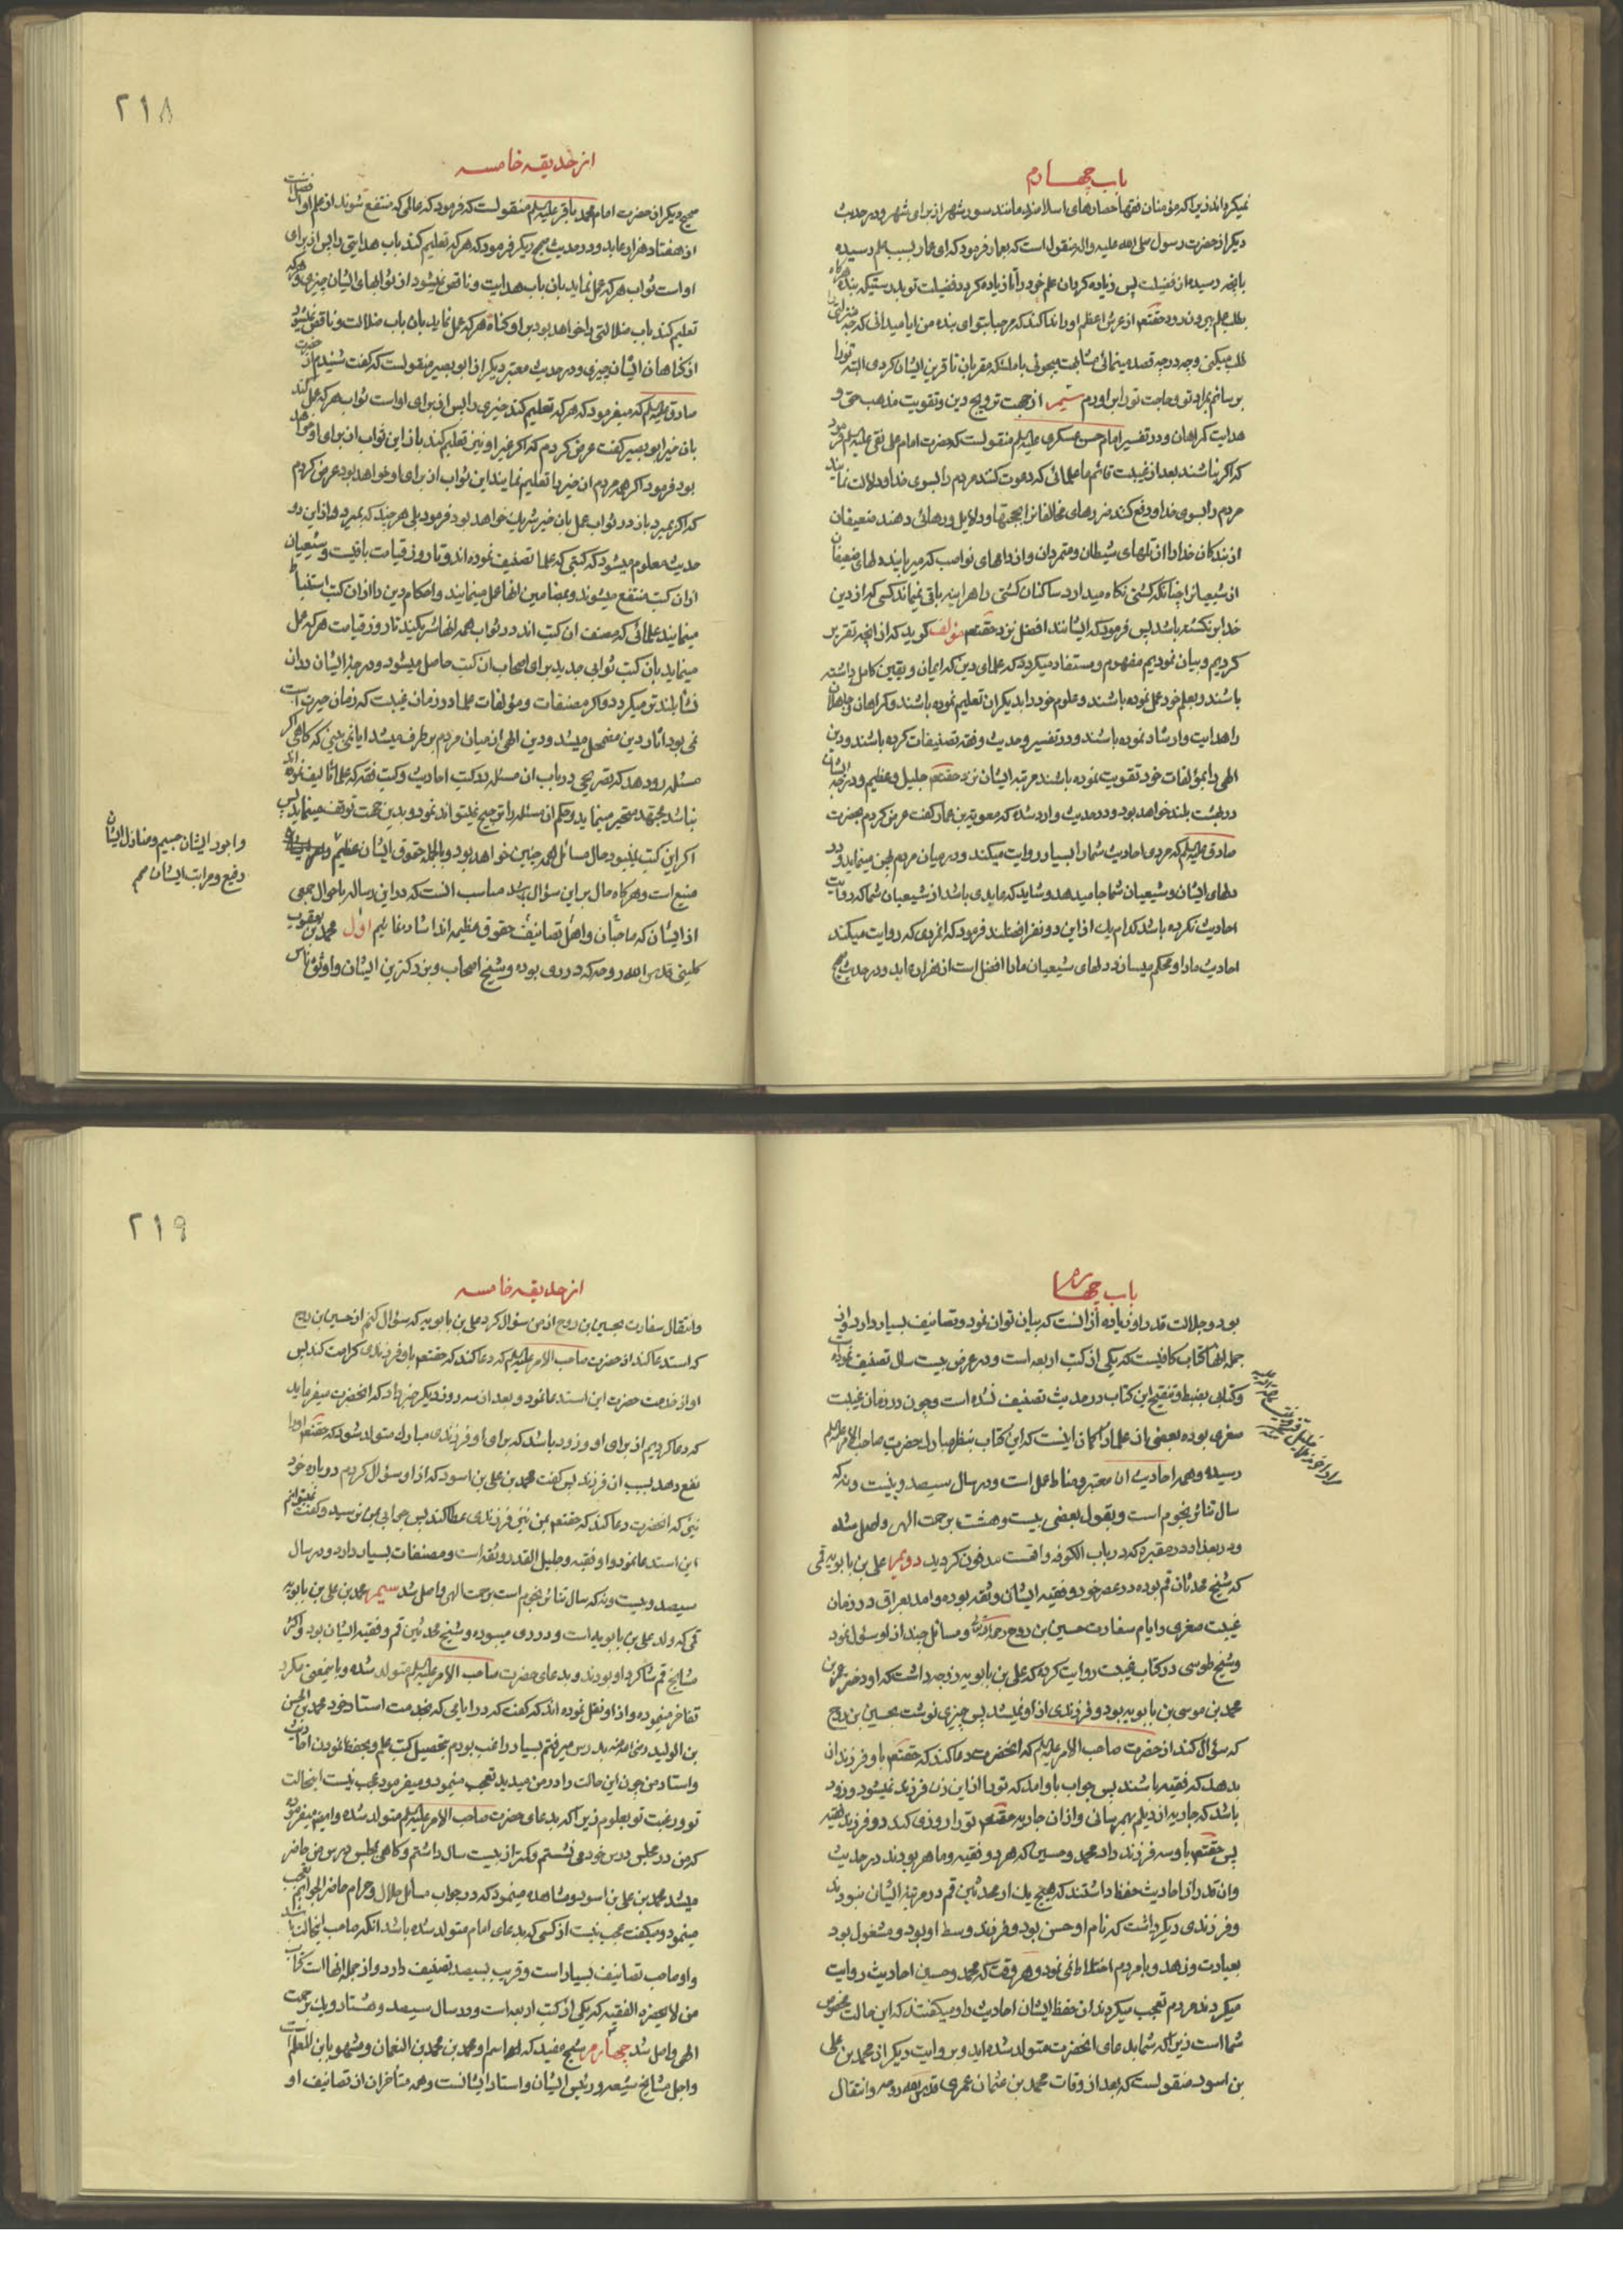 باب چهارم
نمیکرداند زیرا که مؤمنان فقها حصارهای اسلامند مانند سور شهر از برای شهر و در حدیث
دیکر از حضرت رسول صلی الله علیه واله منقول است که بعمار فرمود که ای عمار بسبب علم رسیده
بآنچه رسیده از فضیلت پس زیاده کردان علم خود را تا زیاده کردد فضیلت تو بدرستیکه بنده هرکاه
بطلب علم بیرون رود حقتعم از عرش اعظم او را ندا کند که مرحبا بتو ای بنده من ایا میدانی که چه منزلتی را
طلب میکنی و چه درجه قصد مینمائی مشابهت میجوئی با ملئکه مقربان تا قرین ایشان کردی البته تو را
برسانم بمراد تو و حاجت تو را براورم سیم از جهت ترویج دین و تقویت مذهب حق و
هدایت کمراهان و در تفسیر امام حسن عسکری علیه السلم منقولست که حضرت امام علی نقی علیه السلم فرمود
که اکر نباشند بعد از غیبت قائم ما علمائی که دعوت کنند مردم را بسوی خدا و دلالت نمایند
مردم را بسوی خدا و دفع کنند ضررهای مخالفانرا بحجتها و دلایل و رهائی دهند ضعیفان
از بندکان خدا را از تلهای شیطان و متمردان و از دامهای نواصب که میربایند دلهای ضعیفان
از شیعیانرا چنانکه کشتی نکاه میدارد ساکنان کشتی را هراینه باقی نمیماند کسی که از دین
خدا برنکشته باشد پس فرمود که ایشانند افضل نزد حقتعم مؤلف کوید که از انچه تقریر
کردیم و بیان نمودیم مفهوم و مستفاد میکردد که علمای دین که ایمان و یقین کامل داشته
باشند و بعلم خود عمل نموده باشند و علوم خود را بدیکران تعلیم نموده باشند و کمراهان و جاهلان
را هدایت و ارشاد نموده باشند و در تفسیر و حدیث و فقه تصنیفات کرده باشند و دین
الهی را بمؤلفات خود تقویت نموده باشند مرتبه ایشان نزد حقتعم جلیل و عظیم و درجه ایشان
در بهشت بلند خواهد بود و در حدیث وارد شده که معویة بن عمار کفت عرض کردم بحضرت
صادق علیه السلم که مردی احادیث شما را بسیار روایت میکند و در میان مردم پهن مینماید و در
دلهای ایشان و شیعیان شما جا میدهد و شاید که عابدی باشد از شیعیان شما که روایت
احادیث نکرده باشد کدام یک از این دو نفر افضلند فرمود که انمردی که روایت میکند
احادیث ما را و محکم میسازد در دلهای شیعیان ما را افضل است از هزار عابد و در حدیث صحیح
۲۱۸
از حدیقه خامسه
صحیح دیکر از حضرت امام محمد باقر علیه السلم منقولست که فرمود که عالمی که منتفع شوند از علم او افضل است
از هفتاد هزار عابد و در حدیث صحیح دیکر فرمود که هر که تعلیم کند باب هدایتی را پس از برای
او است ثواب هر که عمل نماید بان باب هدایت و ناقص نمیشود از ثوابهای ایشان چیزی و هر که
تعلیم کند باب ضلالتی را خواهد بود بر او کناه هر که عمل نماید بان باب ضلالت و ناقص نمیشود
از کناهان ایشان چیزی و در حدیث معتبر دیکر از ابو بصیر منقولست که کفت شنیدم از حضرت
صادق علیه السلم که میفرمود که هر که تعلیم کند خیری را پس از برای او است ثواب هر که عمل کند
بان خیر ابو بصیر کفت عرض کردم که اکر غیر او نیز تعلیم کند باز این ثواب ان برای او خواهد
بود فرمود اکر همه مردم ان خیر را تعلیم نمایند این ثواب از برای او خواهد بود عرض کردم
که اکر بمیرد باز در ثواب عمل بان خیر شریک خواهد بود فرمود بلی هر چند که بمیرد و از این دو
حدیث معلوم میشود که کتبی که علما تصنیف نموده اند و تا روز قیامت باقیست و شیعیان
از ان کتب منتفع میشوند و بمضامین انها عمل مینمایند و احکام دین را از ان کتب استنباط
مینمایند علمائی که مصنف ان کتب اند در ثواب همه انها شریکند تا روز قیامت هر که عمل
مینماید بان کتب ثوابی جدید برای اصحاب ان کتب حاصل میشود و درجه ایشان در ان
نشأه بلندتر میکردد و اکر مصنفات و مؤلفات علما در زمان غیبت که زمان حیرت است
نمی بود اثار دین مضمحل میشد و دین الهی از میان مردم برطرف میشد ایا نمی بینی که کاهی اکر
مسئله رو دهد که تصریحی در باب ان مسئله در کتب احادیث و کتب فقه که علما تألیف نموده اند
نباشد مجتهد متحیر مینماید و حکم ان مسئله را ترجیح نمیتواند نمود و بدین جهت توقف مینماید پس
اکر این کتب نمیبود حال مسائل همه چنین خواهد بود و بالجمله حقوق ایشان عظیم
منیع است و هرکاه حال بر این سؤال باشد مناسب انست که در این رساله باحوال جمعی
از ایشان که صاحبان و اهل تصانیف حقوق عظیمه اند اشاره نمائیم اول محمد بن یعقوب
کلینی قدس الله روحه که در ری بوده و شیخ اصحاب و بزرکترین ایشان و اوثق ناس
و اجور ایشان جسیم و منازل ایشان
رفیع و مراتب ایشان صح
باب چهارم
بود و جلالت قدر او زیاده از انست که بیان توان نمود و تصانیف بسیار دارد و از
جمله انها کتاب کافیست که یکی از کتب اربعه است و در عرض بیست سال تصنیف نموده است
و کتابی بضبط و تنقیح این کتاب در حدیث تصنیف نشده است و چون در زمان غیبت
صغری بوده بعضی از علما را کمان اینست که این کتاب بنظر مبارک حضرت صاحب الامر علیه السلم
رسیده و همه احادیث ان معتبر و مناط عمل است و در سال سیصد و بیست و نه که
سال تناثر نجوم است و بقول بعضی بیست و هشت برحمت الهی واصل شده
و در بغداد در مقبره که در باب الکوفه واقست مدفون کردید دویم علی بن بابویه قمی
که شیخ محدثان قم بوده در عصر خود و فقیه ایشان و ثقه بوده و امد بعراق در زمان
غیبت صغری و ایام سفارت حسین بن روح رحمه الله و مسائل چند از او سئوال نمود
و شیخ طوسی در کتاب غیبت روایت کرده که علی بن بابویه زوجه داشت که او دختر عم بن
محمد بن موسی بن بابویه بود و فرزندی از او نمیشد پس چیزی نوشت بحسین بن روح
که سؤال کند از حضرت صاحب الامر علیه السلم که انحضرت دعا کند که حقتعم باو فرزندان
بدهد که فقیه باشند پس جواب باو امد که تو را از این زن فرزند نمیشود و زود
باشد که جاریه از دیلم بهمرسانی و از ان جاریه حقتعم تو را روزی کند دو فرزند فقیه
پس حقتعم باو سه فرزند داد محمد و حسین که هر دو فقیه و ماهر بودند در حدیث
و ان قدر از احادیث حفظ داشتند که هیچ یک از محدثین قم در مرتبه ایشان نبودند
و فرزندی دیکر داشت که نام او حسن بود و فرزند وسط او بود و مشغول بود
بعبادت و زهد و با مردم اختلاط نمی نمود و هر وقت که محمد و حسین احادیث روایت
میکردند مردم تعجب میکردند از حفظ ایشان احادیث را و میکفتند که این حالت مخصوص
شما است زیرا که شما بدعای انحضرت متولد شده اید و بروایت دیکر از محمد بن علی
بن اسود منقولست که بعد از وفات محمد بن عثمان عمری قدس الله روحه و انتقال
۲۱۹
از حدیقه خامسه
و انتقال سفارت بحسین بن روح از من سؤال کرد علی بن بابویه که سؤال کنم از حسین بن روح
که استدعا کند از حضرت صاحب الامر علیه السلم که دعا کند که حقتعم باو فرزندی کرامت کند پس
او از خدمت حضرت این استدعا نمود و بعد از سه روز دیکر خبر داد که انحضرت میفرماید
که دعا کردیم از برای او و زود باشد که برای او فرزندی مبارک متولد شود که حقتعم او را
نفع دهد بسبب ان فرزند پس کفت محمد بن علی بن اسود که از او سؤال کردم در باره خود
نیز که انحضرت دعا کند که حقتعم بمن نیز فرزندی عطا کند پس جوابی بمن نرسید و کفت نمیتوانم
این استدعا نمود و او فقیه و جلیل القدر و ثقه است و مصنفات بسیار دارد و در سال
سیصد و بیست و نه که سال تناثر نجوم است برحمت الهی واصل شد سیم محمد بن علی بن بابویه
قمی که ولد علی بن بابویه است و در ری میبوده و شیخ محدثین قم و فقیه ایشان بود و اکثر
مشایخ قم شاکرد او بودند و بدعای حضرت صاحب الامر علیه السلم متولد شده و باینمعنی مکرر
تفاخر مینموده و از او نقل نموده اند که کفت که در ایامی که بخدمت استاد خود محمد بن الحسن
بن الولید رضی الله عنه بدرس میرفتم بسیار راغب بودم بتحصیل کتب علم و بحفظ نمودن احادیث
و استاد من چون این حالت را در من میدید تعجب مینمود و میفرمود عجب نیست اینحالت
تو و رغبت تو بعلوم زیرا که بدعای حضرت صاحب الامر علیه السلم متولد شده و اینهم میفرموده
که من در مجلس درس خود می نشستم و کمتر از بیست سال داشتم و کاهی بمجلس درس من حاضر
میشد محمد بن علی بن اسود و مشاهده مینمود که در جواب مسائل حلال و حرام حاضر الجوابم تعجب
مینمود و میکفت عجب نیست از کسی که بدعای امام متولد شده باشد انکه صاحب اینحالت باشد
و او صاحب تصانیف بسیار است و قریب بسیصد تصنیف دارد و از جمله انها است کتاب
من لا یحضره الفقیه که یکی از کتب اربعه است و در سال سیصد و هشتاد و یک برحمت
الهی واصل شد چهارم شیخ مفید که اسم او محمد بن محمد بن النعمان و مشهور بابن المعلم است
و اجل مشایخ شیعه و رئیس ایشان و استاد ایشانست و همه متأخران از تصانیف او